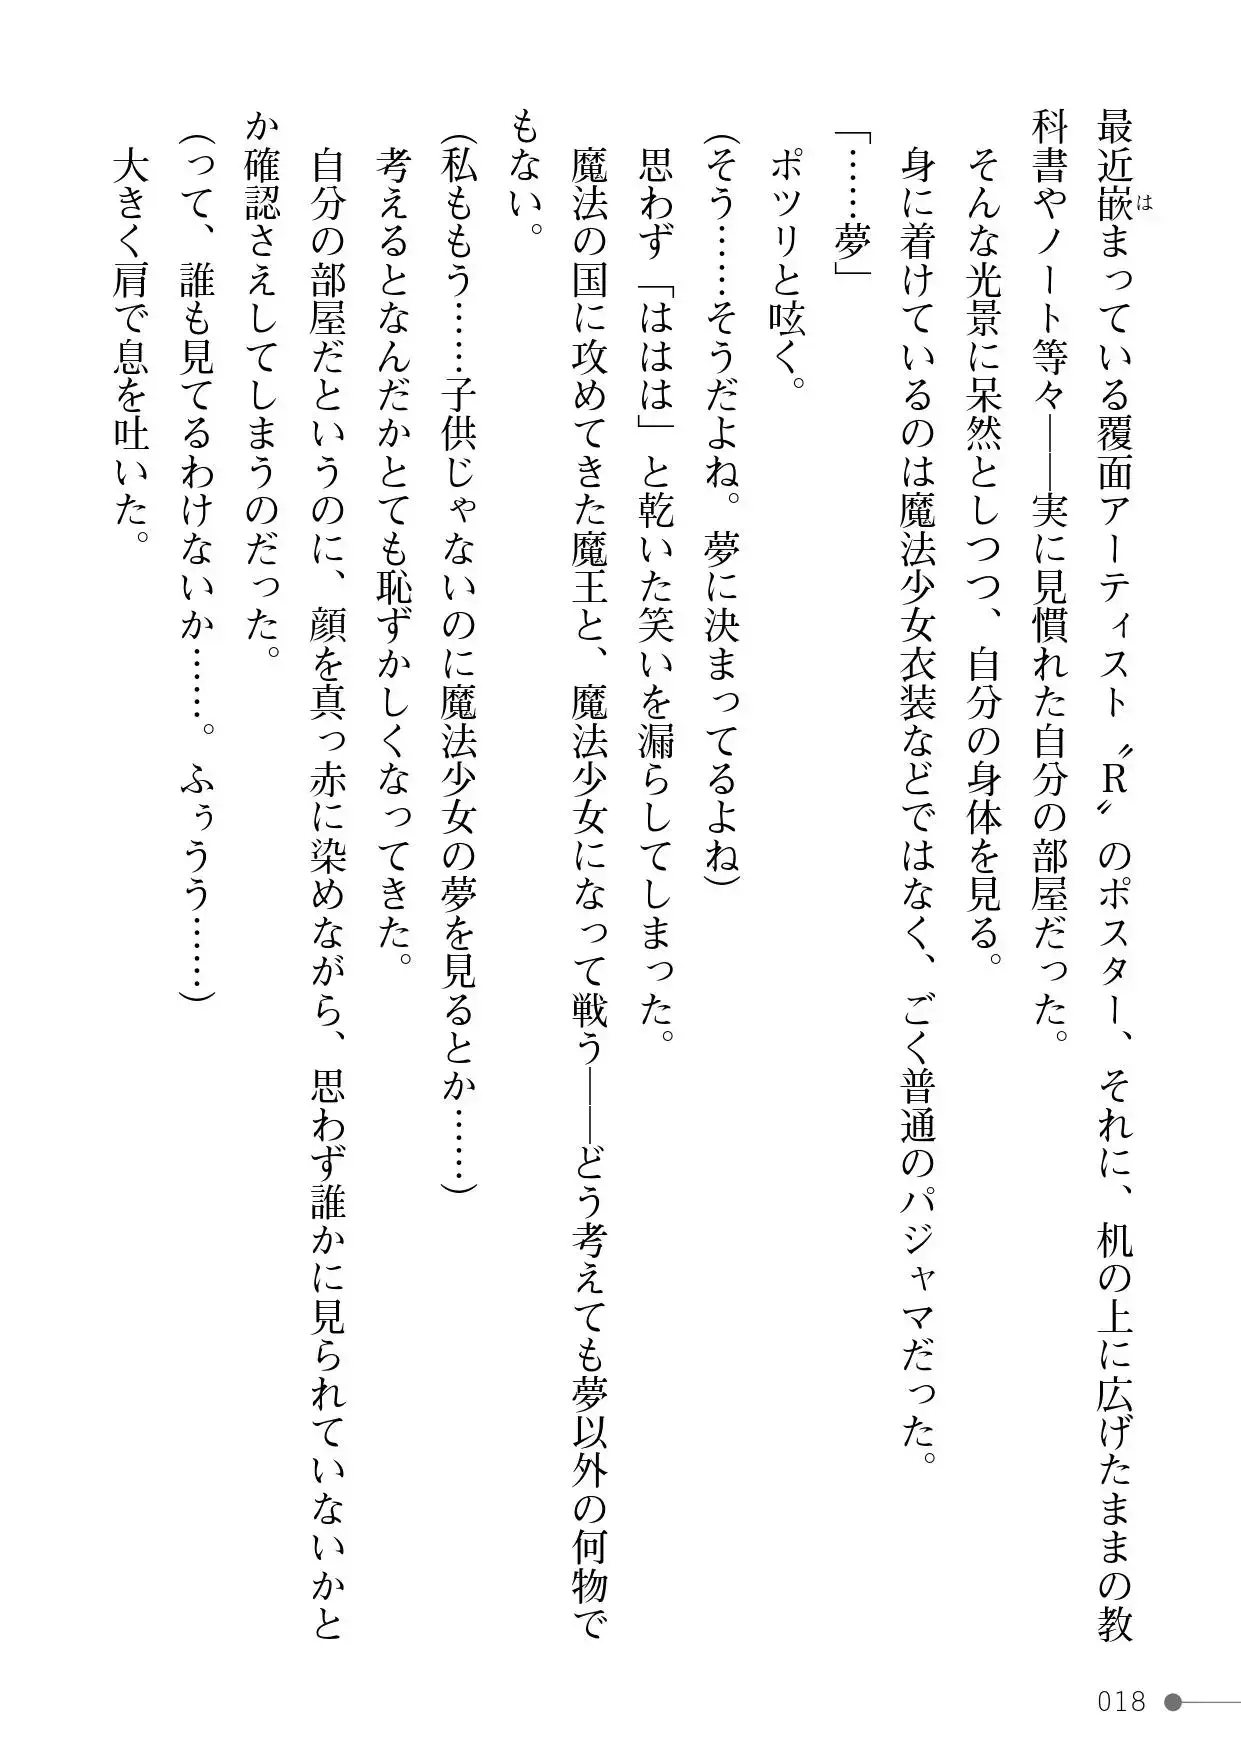 最近嵌まっている覆面アーティスト〝R〟のポスター、それに、机の上に広げたままの教
は
科書やノート等々――実に見慣れた自分の部屋だった。
そんな光景に呆然としつつ、自分の身体を見る。
身に着けているのは魔法少女衣装などではなく、ごく普通のパジャマだった。
「……夢」
ポツリと呟く。
(そう……そうだよね。夢に決まってるよね)
思わず「ははは」と乾いた笑いを漏らしてしまった。
魔法の国に攻めてきた魔王と、魔法少女になって戦う――どう考えても夢以外の何物で
もない。
(私ももう……子供じゃないのに魔法少女の夢を見るとか……)
考えるとなんだかとても恥ずかしくなってきた。
自分の部屋だというのに、顔を真っ赤に染めながら、思わず誰かに見られていないかと
か確認さえしてしまうのだった。
(って、誰も見てるわけないか……。ふぅうう……)
大きく肩で息を吐いた。
018